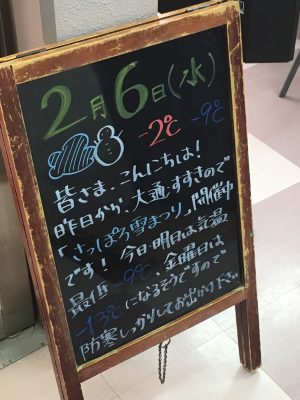 2月6日(水)
-2℃ -9℃
皆さま、こんにちは!
昨日から、大通、すすきので
「さっぽろ雪まつり」開催中
です! 今日・明日は気温
最低-9℃、金曜日は
-13℃になるそうですので
防寒しっかりしてお出け下さい